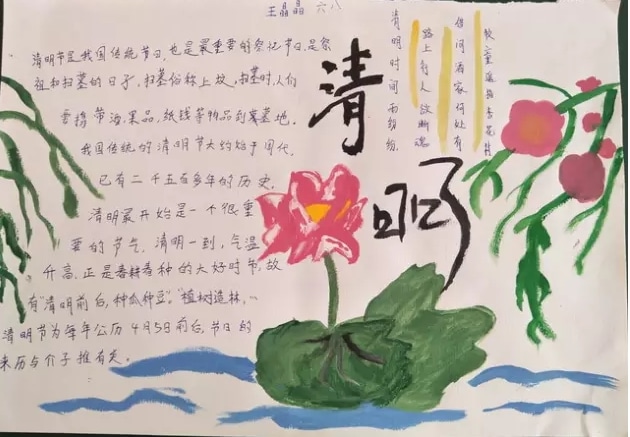 王晶晶 六八
清明节是我国传统节日,也是最重要的祭记节日,是祭
祖和扫墓的日子,扫墓俗称上坟,扫墓时,人们
要携带酒,果品,纸钱等物品到墓地。
我国传统的清明节大约始于周代,
已有二千五百多年的历史,
清明最开始是一个很重
要的节气,清明一到,气温
升高,正是春耕春种的大好时节,故
有"清明前后,种瓜种豆"。"植树造林,
清明节为每年公历4月5日前后,节日的
来历与介子推有关。
清明
清明时间雨纷纷,
路上行人欲断魂
借问酒家何处有
牧童遥指杏花村